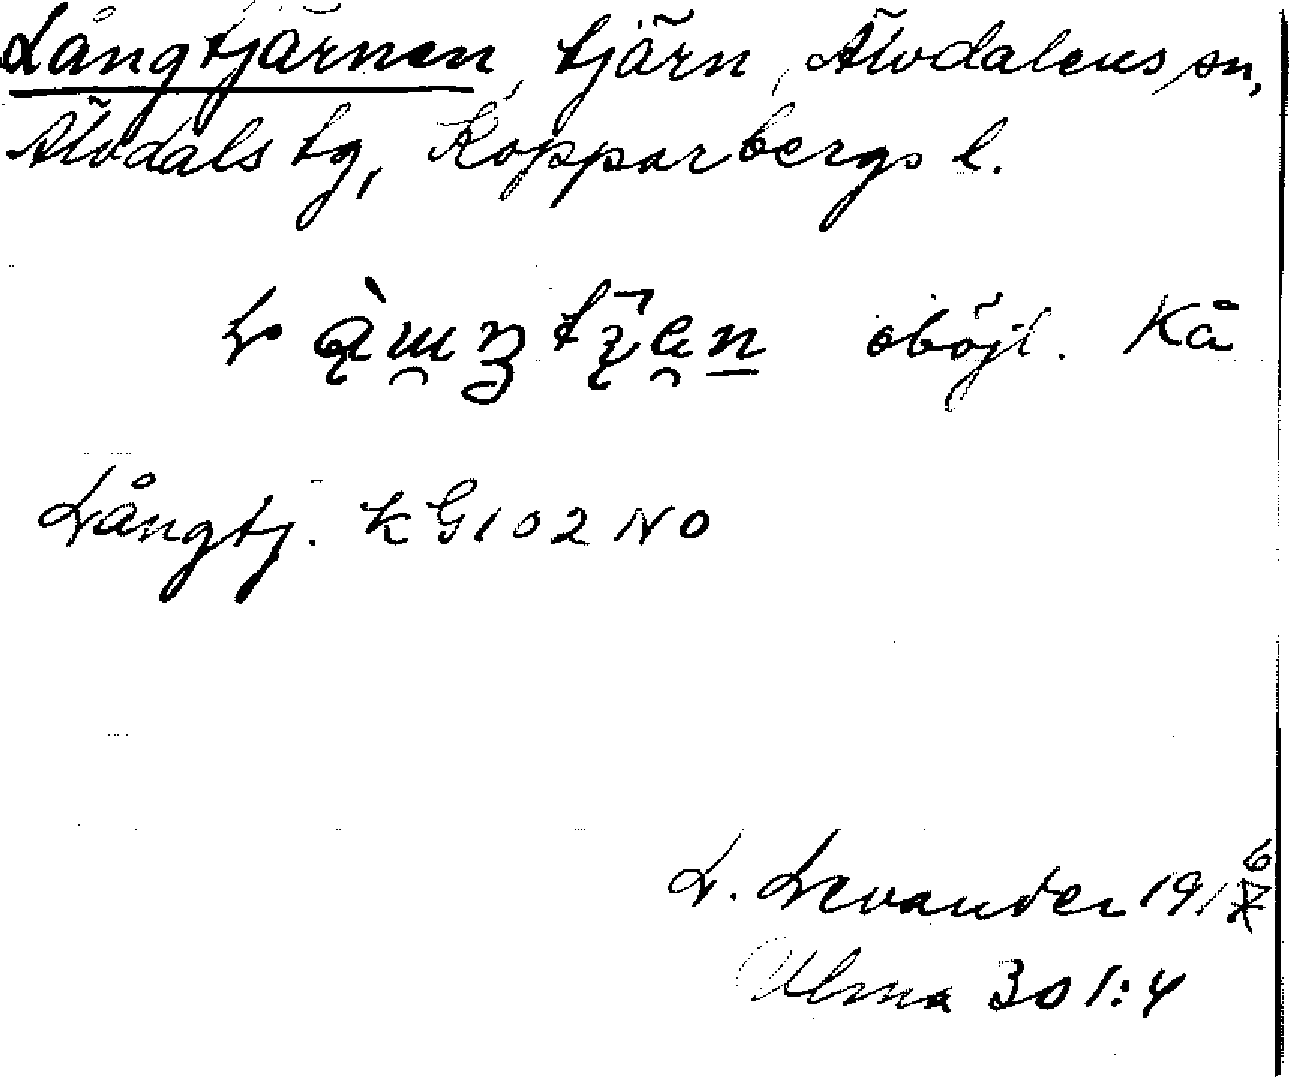 Långtjärnen, tjärn, Älvdalens sn,
Älvdals tg, Kopparbergs l.
oböjl. Kå
Långtj. KG 102 NO
L. Levander 1916
Ulma 301:4